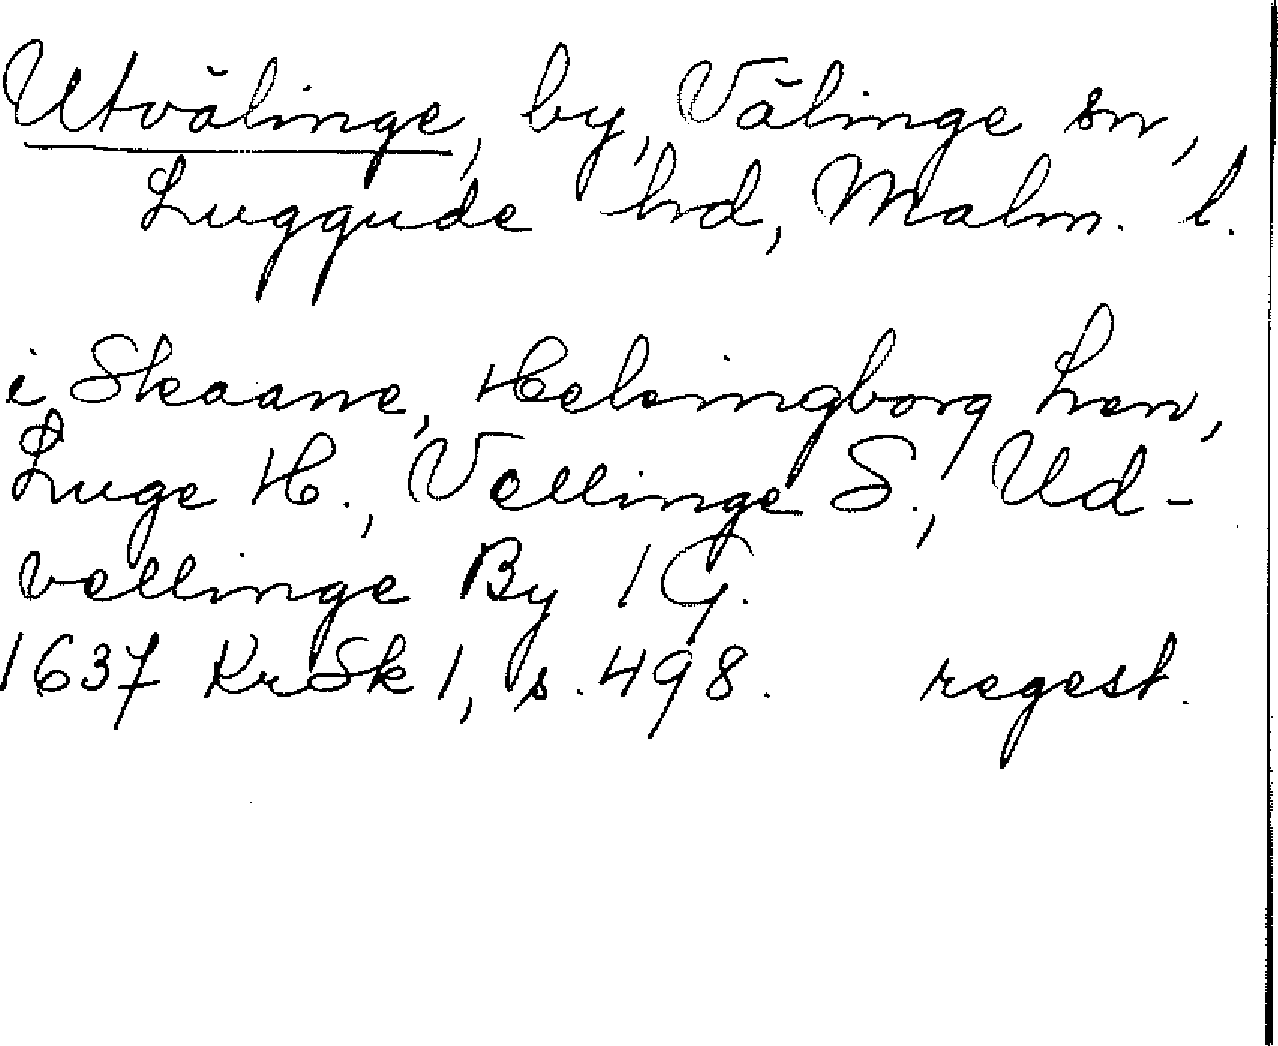 Utvälinge, by, Välinge sn,
Luggude hd, Malm. l.
i Skaane, Helsingborg Len,
Luge H., Vellinge S., Ud-
vellinge By 1 G.
1637 KrSk 1, s. 498. regest.